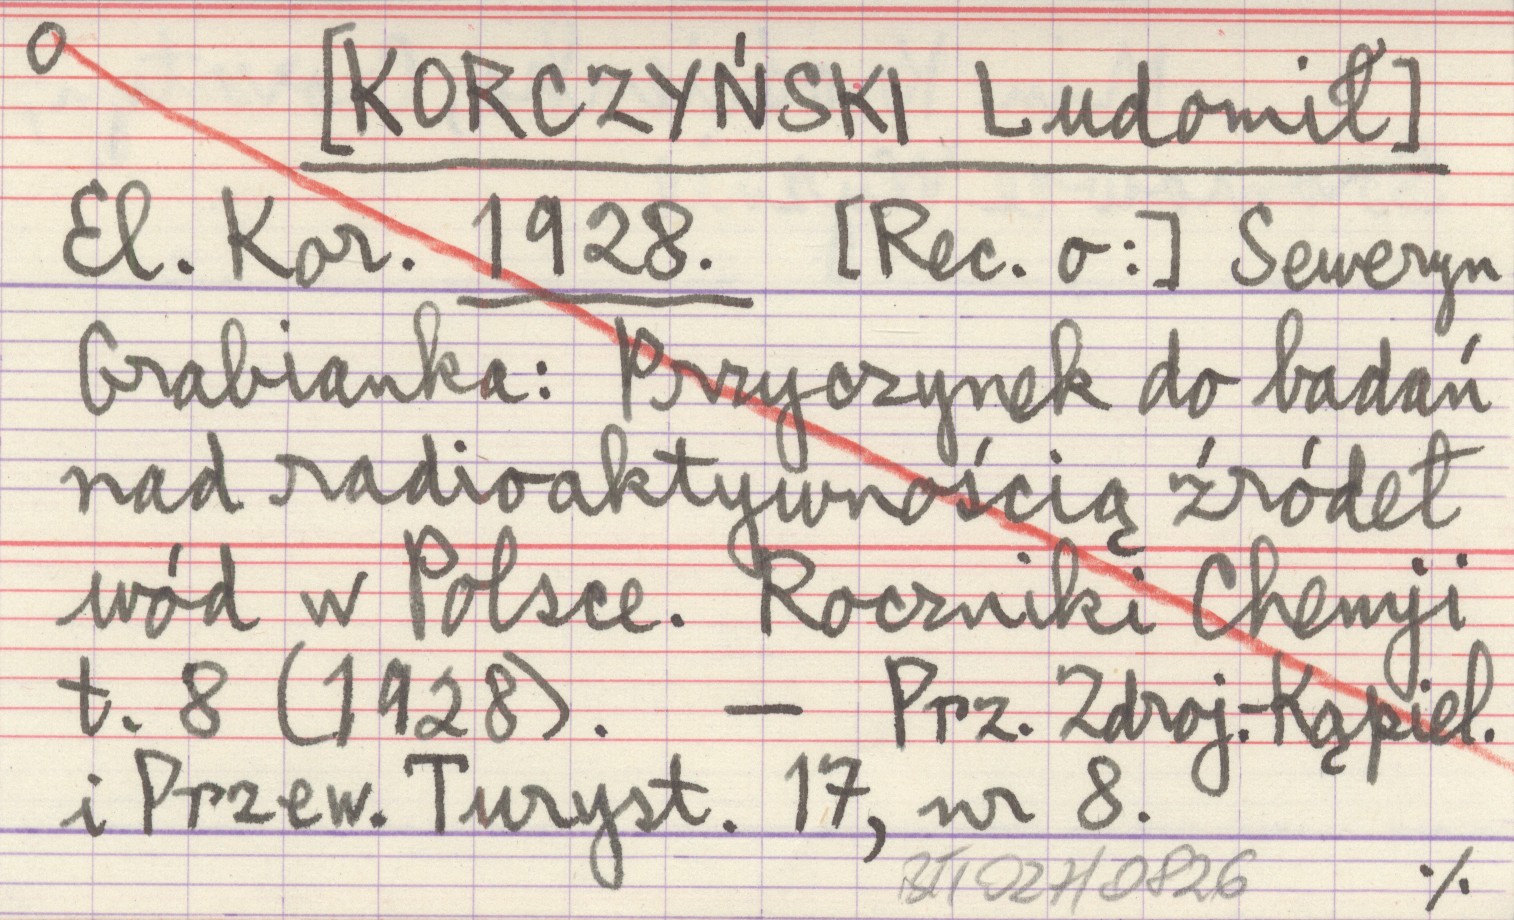 O
[KORCZYŃSKI Ludomił]
El. Kor. 1928. [Rec. o:] Seweryn
Grabianka: Przyczynek do badań
nad radioaktywnością źródeł
wód w Polsce. Roczniki Chemji
t. 8 (1928). — Prz. Zdroj.-Kąpiel.
i Przew. Turyst. 17, nr 8.
./.